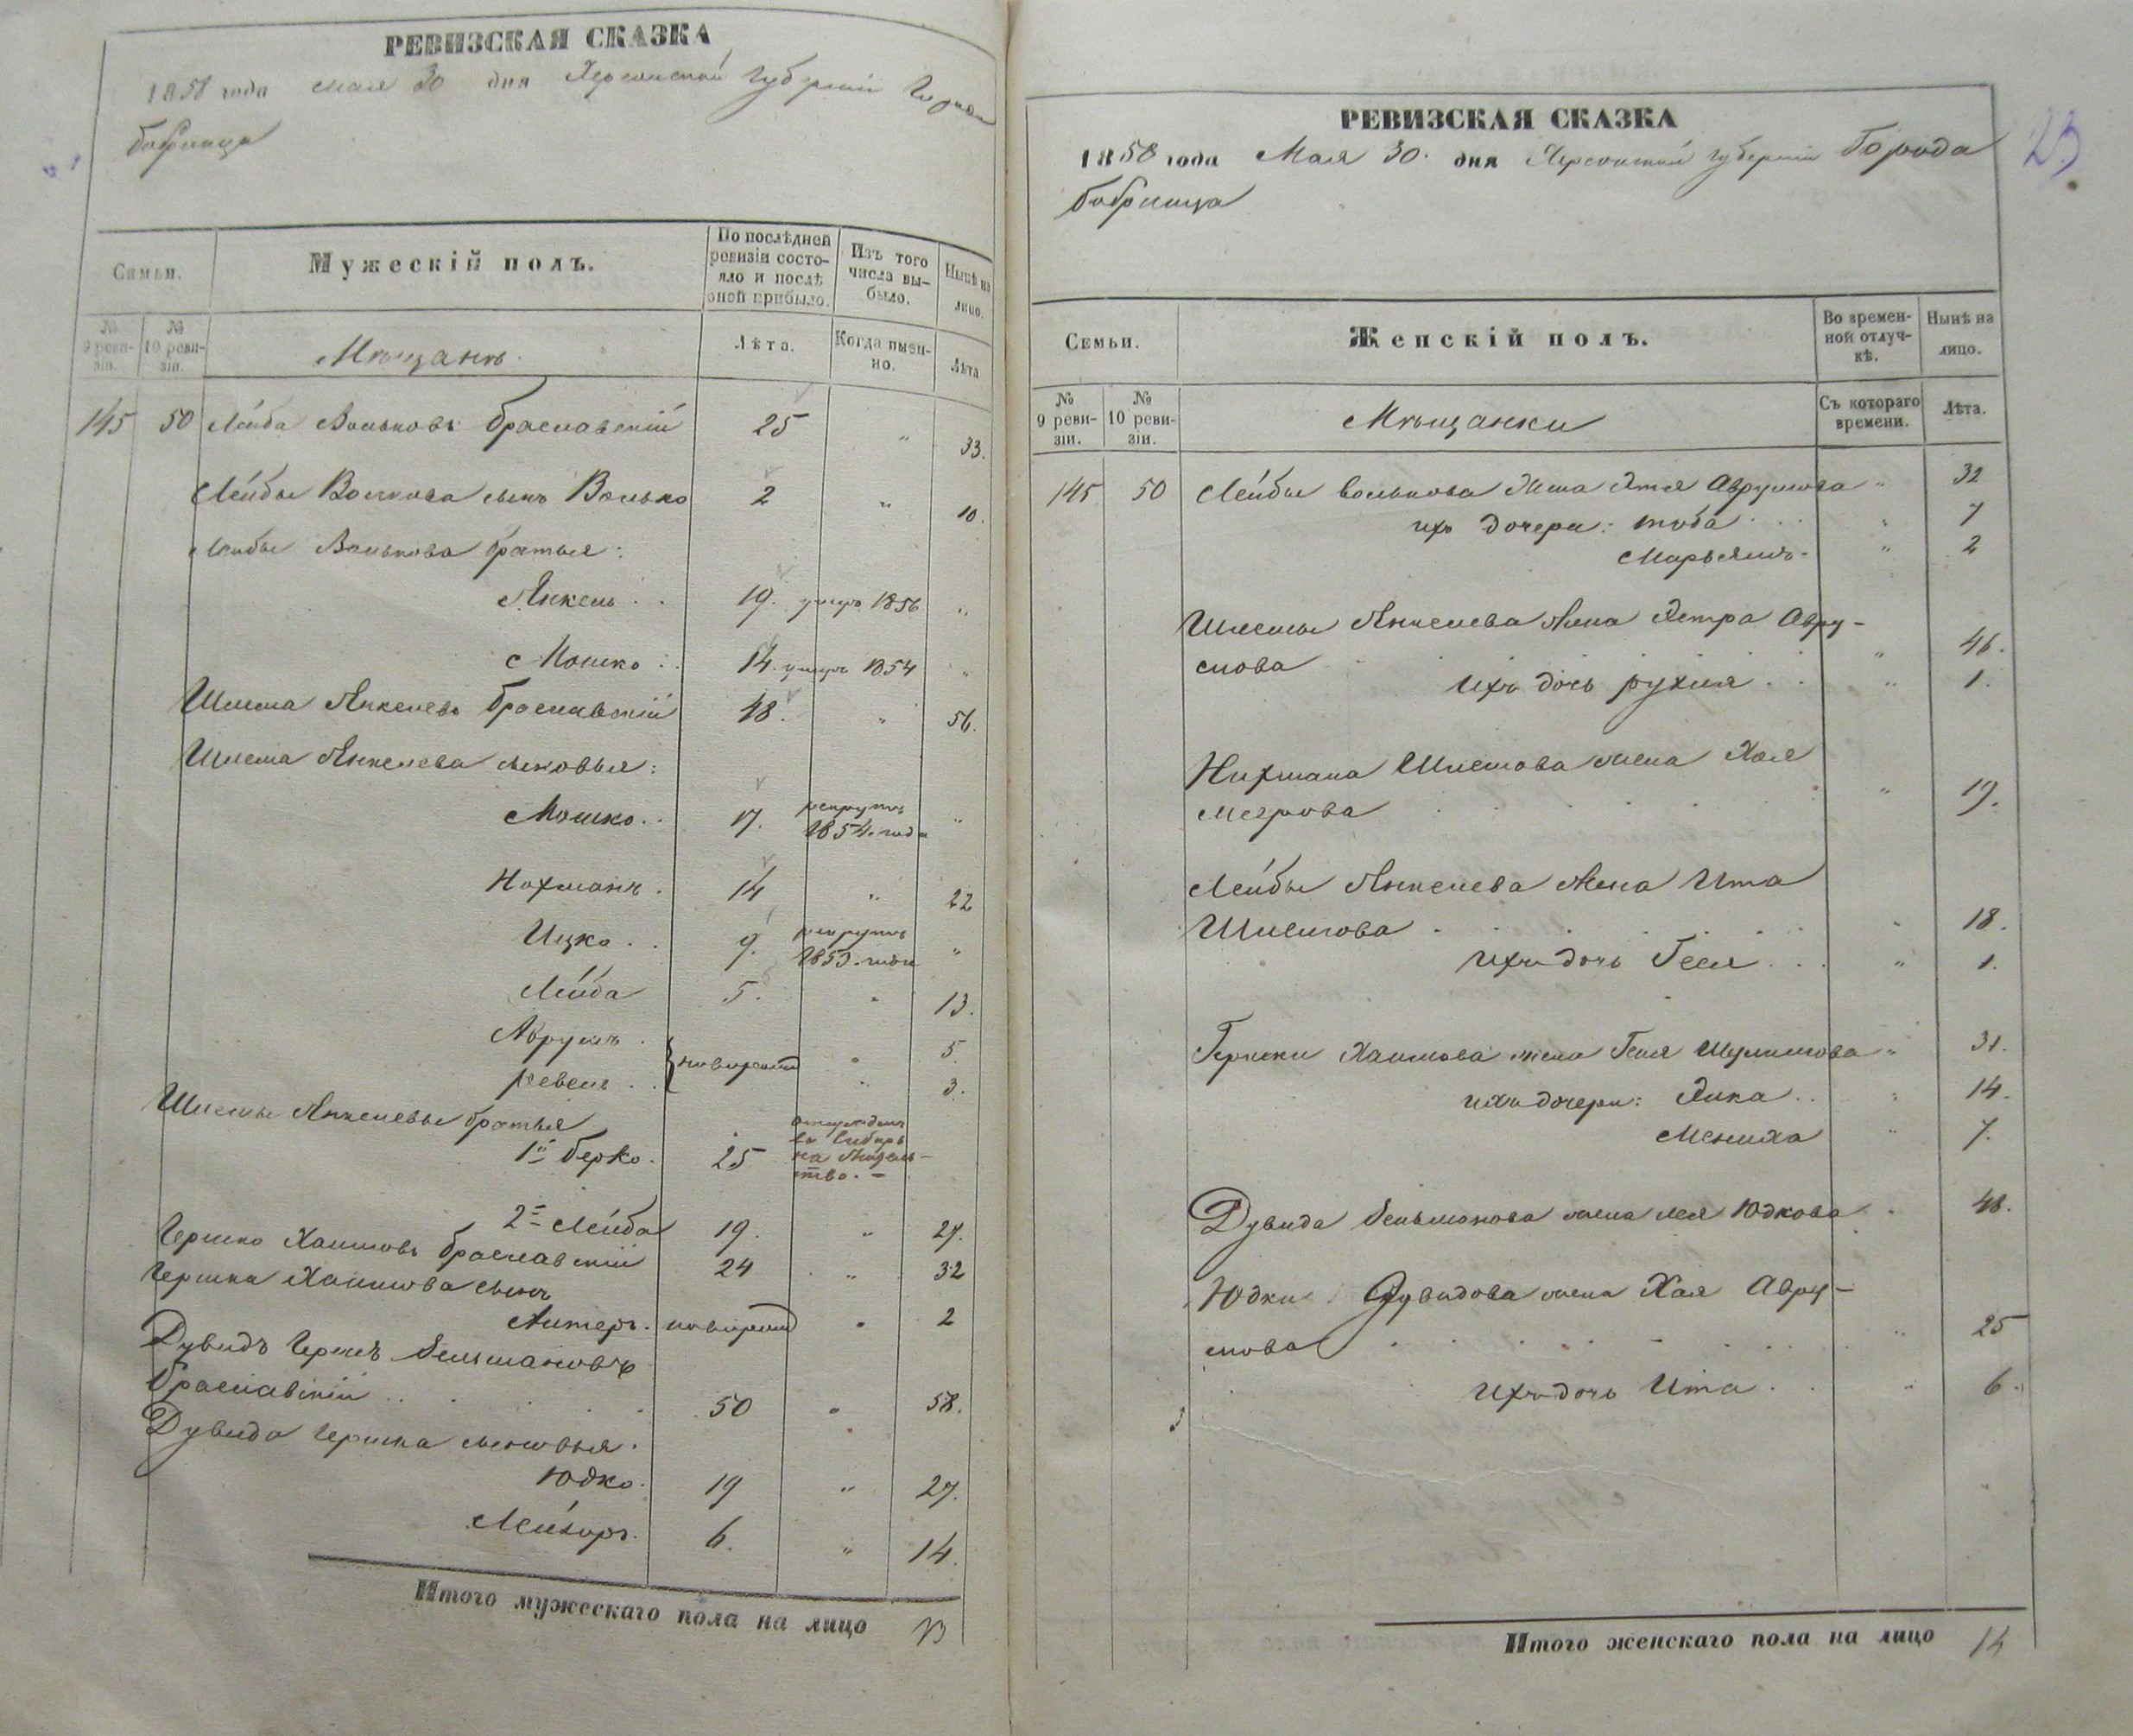 РЕВИЗСКАЯ СКАЗКА
1858 года мая 30 дня Херсонской губерніи Города
бобринца
Семьи.
Мужескій полъ.
По послѣдней ревизіи состояло и послѣ оной прибыло.
Изъ того числа выбыло.
Нынѣ на лицо.
№ 9 ревизіи.
№ 10 ревизіи.
Мѣщане.
Лѣта.
Когда именно.
Лѣта
145 50 Лейба Вольковъ браславскій 25 " 33.
Лейбы Волькова сынъ Волько 2 " 10.
Лейбы Волькова братья:
Янкель . . 19. умеръ 1856 "
Мошко . . 14. умеръ 1854 "
Шлема Янкелевъ браславскій 48. " 56.
Шлема Янкелева сыновья:
Мошко . . 17. рекрутъ 1854. года "
Нохманъ . 14 " 22
Ицко . . 9. рекрутъ 1853. года "
Лейба 5. " 13.
Аврумъ . новорожд " 5.
Левель . . " 3.
Шлемы Янкелевы братья
1й берко. 25 въ Сибирь на
2й Лейба 19. " 27.
Гершко Хаимовъ браславскій 24 " 32
Гершка Хаимова сынъ
Алтеръ. новорожд " 2
Дувидъ Гершъ Зельмановъ
браславскій . . 50 " 58.
Дувида Гершка сыновья.
Юдко. 19 " 27.
Лейзоръ. 6. " 14.
Итого мужескаго пола на лицо 13
РЕВИЗСКАЯ СКАЗКА
1858 года Мая 30. дня Херсонской губерніи Города
бобринца
23
Семьи.
Женскій полъ.
Во временной отлучкѣ.
Нынѣ на лицо.
№ 9 ревизіи.
№ 10 ревизіи.
Мѣщанки
Съ котораго времени.
Лѣта.
145 50 Лейбы Волькова жена Этя Аврумова " 32
ихъ дочери: тоба . . " 7
Марьямъ. " 2
Шлемы Янкелева жена Эстра Авру-
мова " 46.
ихъ дочь рухля . . " 1.
Нихмана Шлемова жена Хая
Меерова " 19.
Лейбы Янкелева жена Ита
Шлемова " 18.
ихъ дочь Геся . . . " 1.
Гершки Хаимова жена Геня Шулимова " 31.
ихъ дочери: Элка . . " 14.
Мениха " 7.
Дувида Зельманова жена лея Юдкова " 48.
Юдки Дувидова жена Хая Авру-
мова " 25
ихъ дочь Ита . . " 6.
Итого женскаго пола на лицо 14